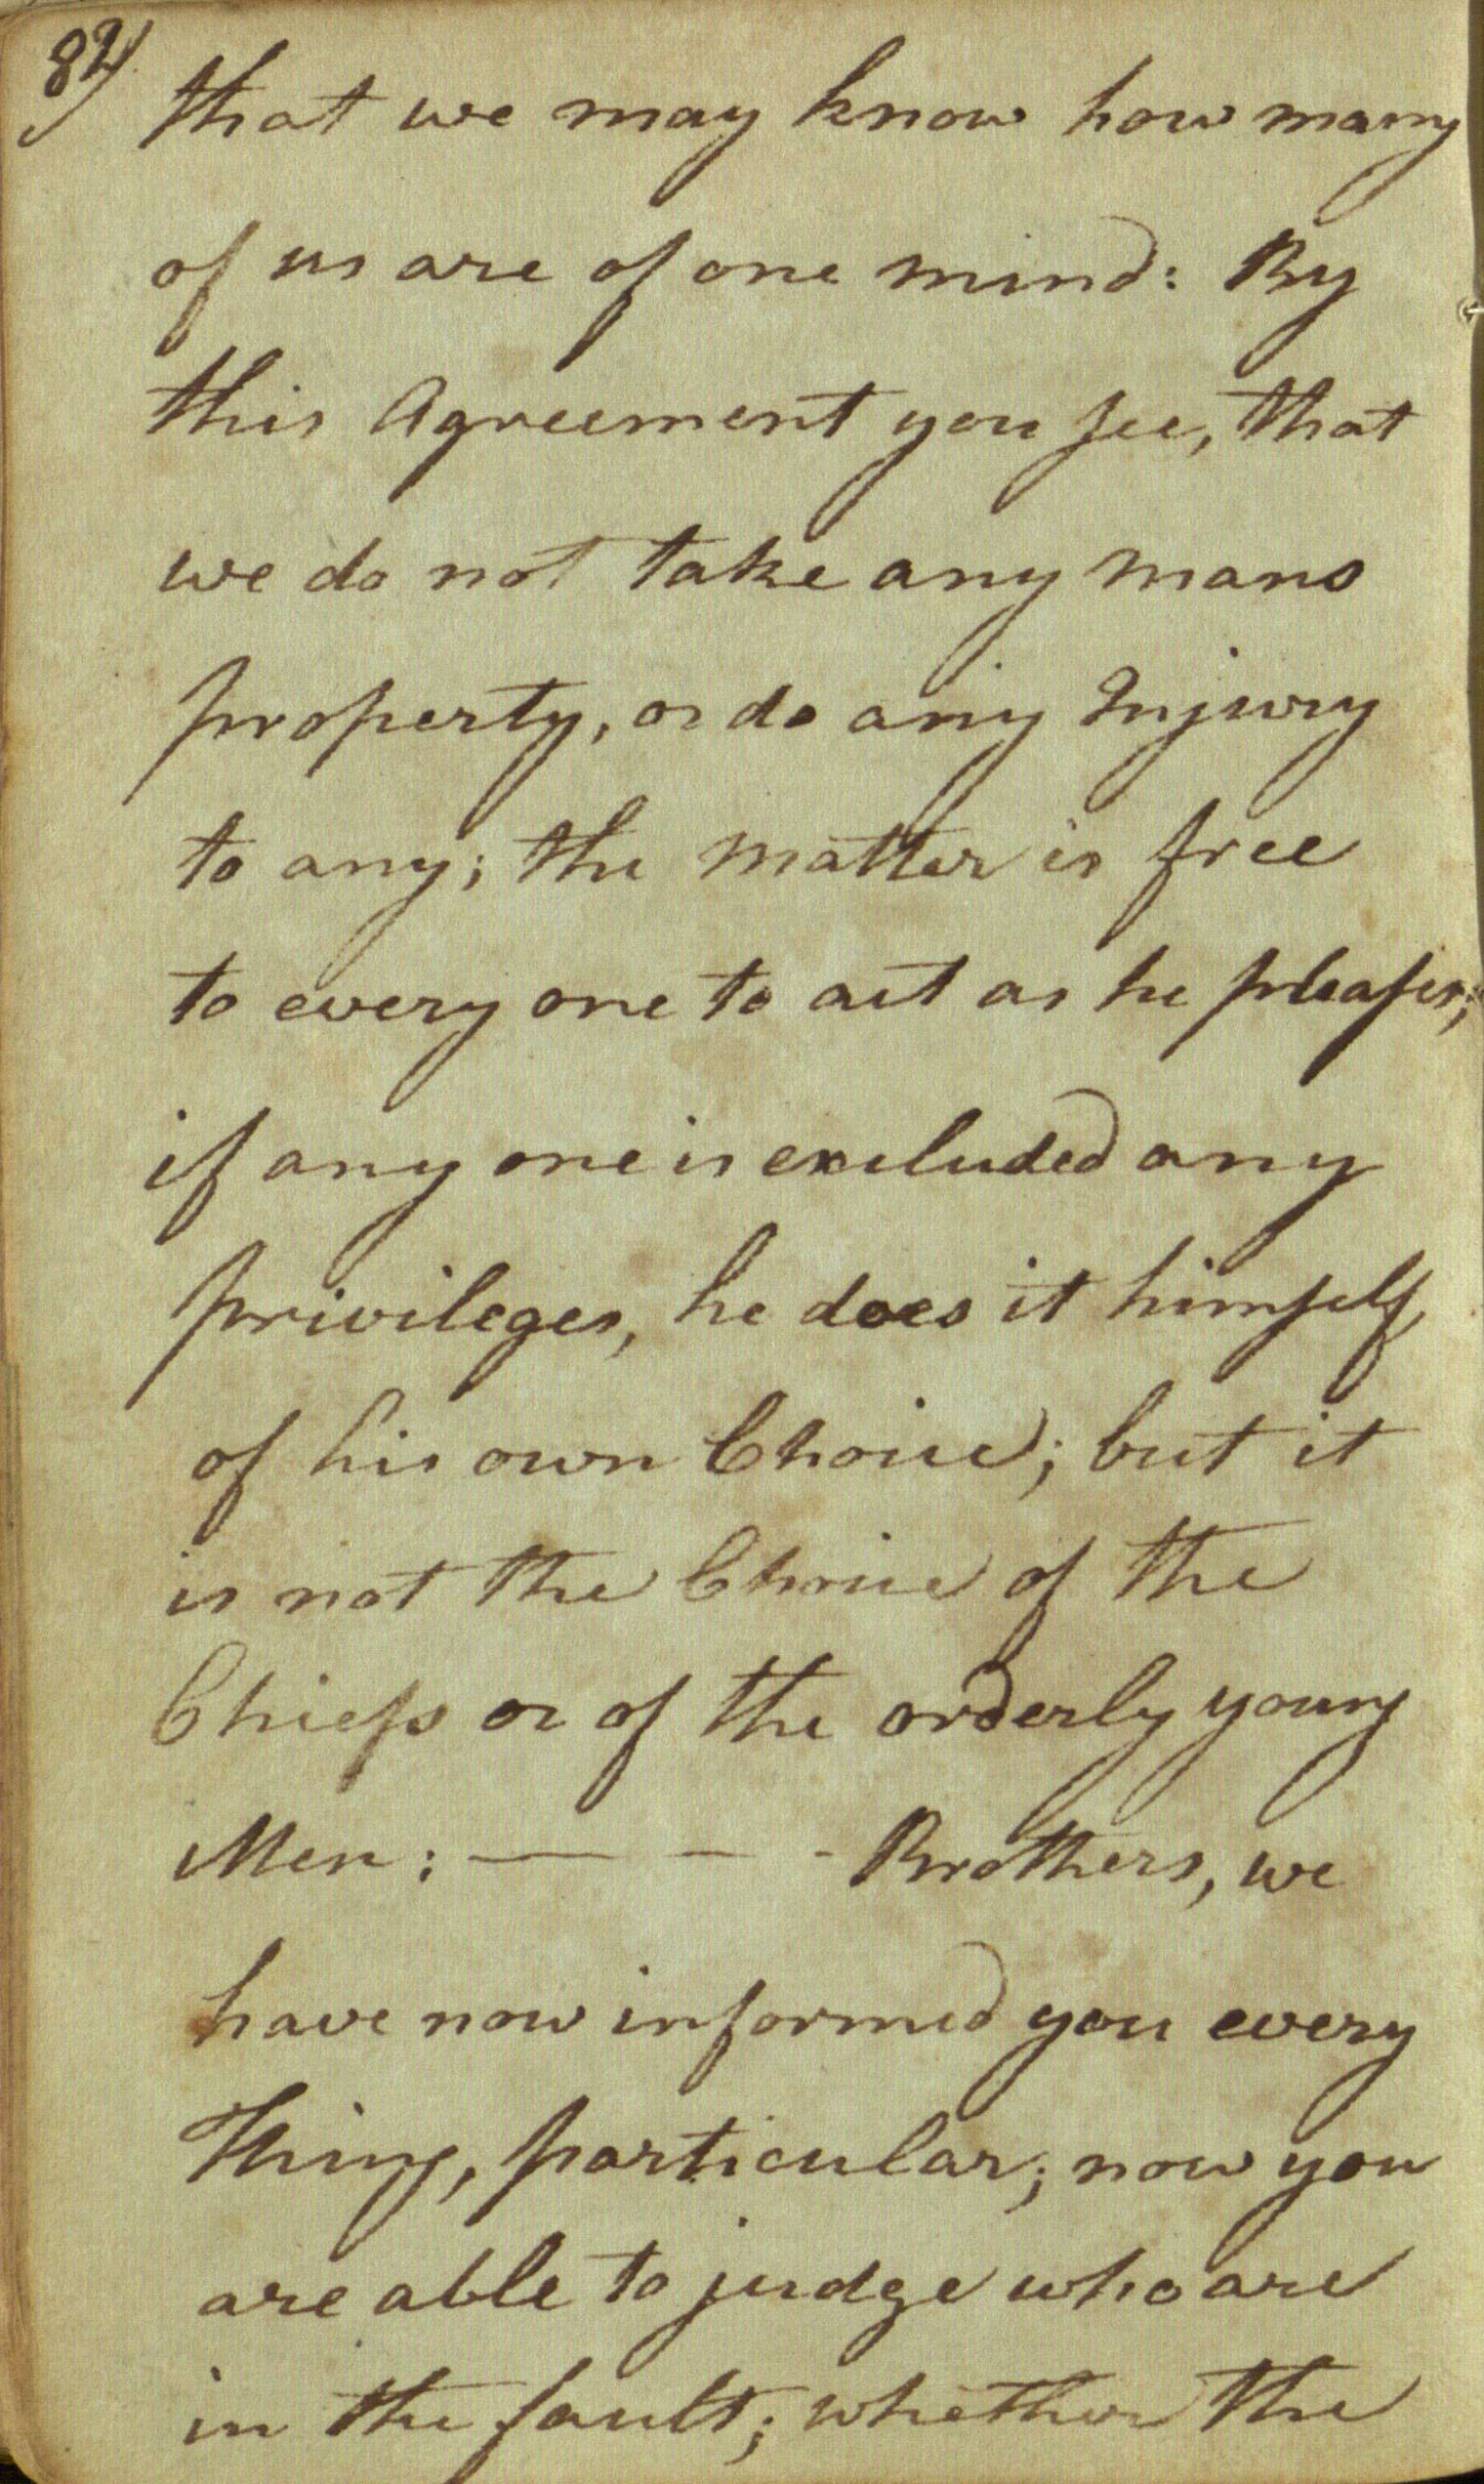 82)
that we may know how many
of us are of one mind: By
this Agreement you see, that
we do not take any mans
property, or do any Injury
to any; the matter is free
to every one to act as he pleases;
if any one is excluded any
privileges, he does it himself,
of his own Choice; but it
is not the Choice of the
Chiefs or of the orderly young
Men: — – - Brothers, we
have now informed you every
Thing, particular; now you
are able to judge who are
in the fault; whether the